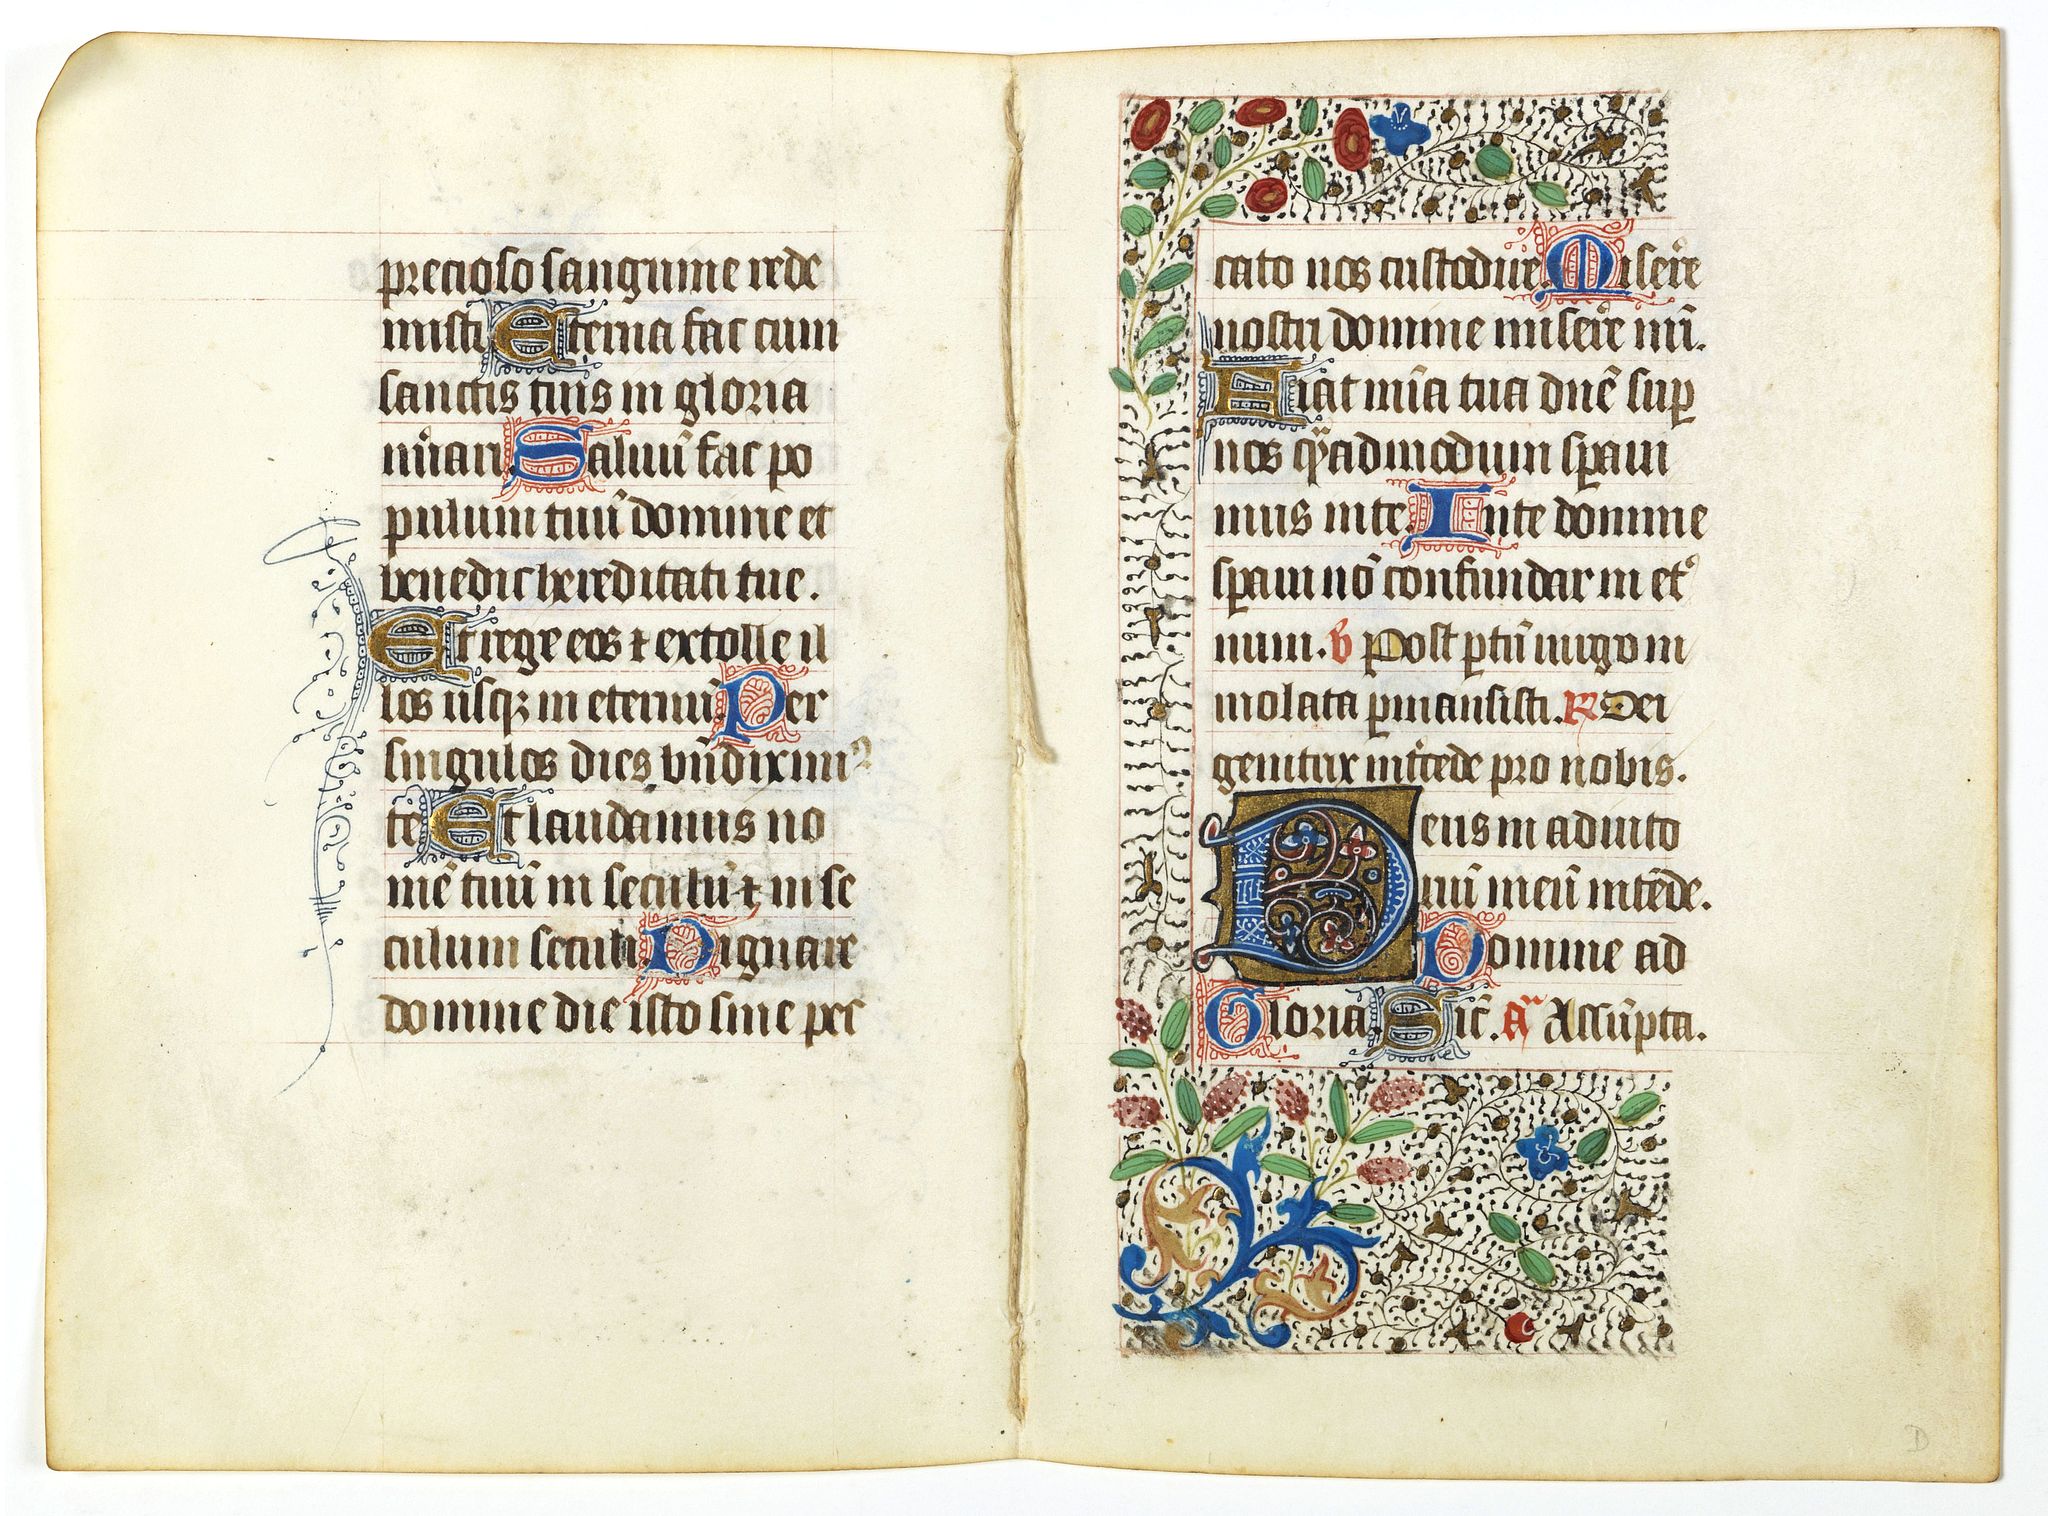 precioso sanguine rede
misti. Eterna fac cum
sanctis tuis in gloria
nũari. Saluũ fac po
pulum tuũ domine et
benedic hereditati tue.
Et rege eos ⁊ extolle il
los usqꝫ in eternũ. Per
singulos dies bñdiximꝰ
te. Et laudamus no
mẽ tuũ in seculũ ⁊ in se
culum seculi. Dignare
domine die isto sine pec
cato nos custodire. Miserͤre
nostri domine miserͤre nr̃i.
Fiat mĩa tua dñe suꝑ
nos qͥadmodum sꝑaui
mus in te. In te domine
sꝑaui nõ confundar in etͦ
num. v̓ Post ꝑtũ uirgo in
uiolata ꝑmansisti. R̓ Dei
genitrix int̓cede pro nobis.
Deus in adiuto
riũ meũ intẽde.
Domine ad
Gloria. Sic̃. añ Assũpta.
D